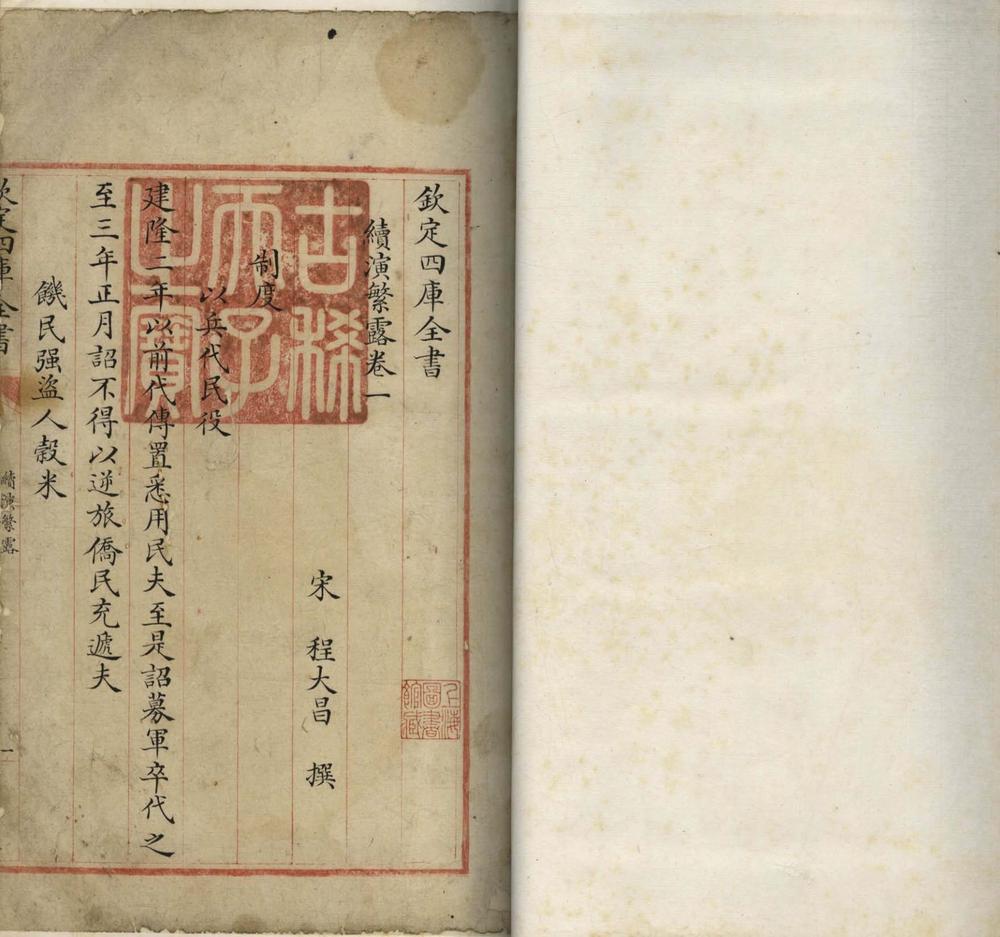 欽定四庫全書
續演繁露卷一
宋 程大昌 撰
制度
以兵代民役
建隆二年以前代傳置悉用民夫至是詔募軍卒代之
至三年正月詔不得以逆旅僑民充遞夫
饑民强盜人穀米
欽定四庫全書
續演繁露
一
古稀天子之寶
上海圖書館藏